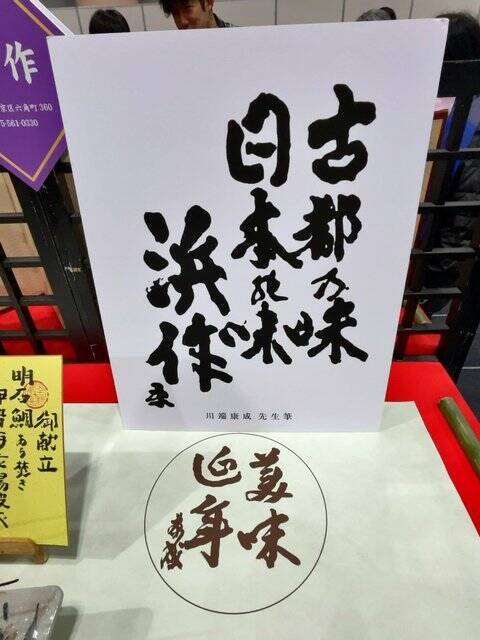 古都の味
日本の味
浜作
川端康成 先生筆
美味
延年
康成
作
京区六角町360
5-561-0330
御献立
明石鯛あら焚き